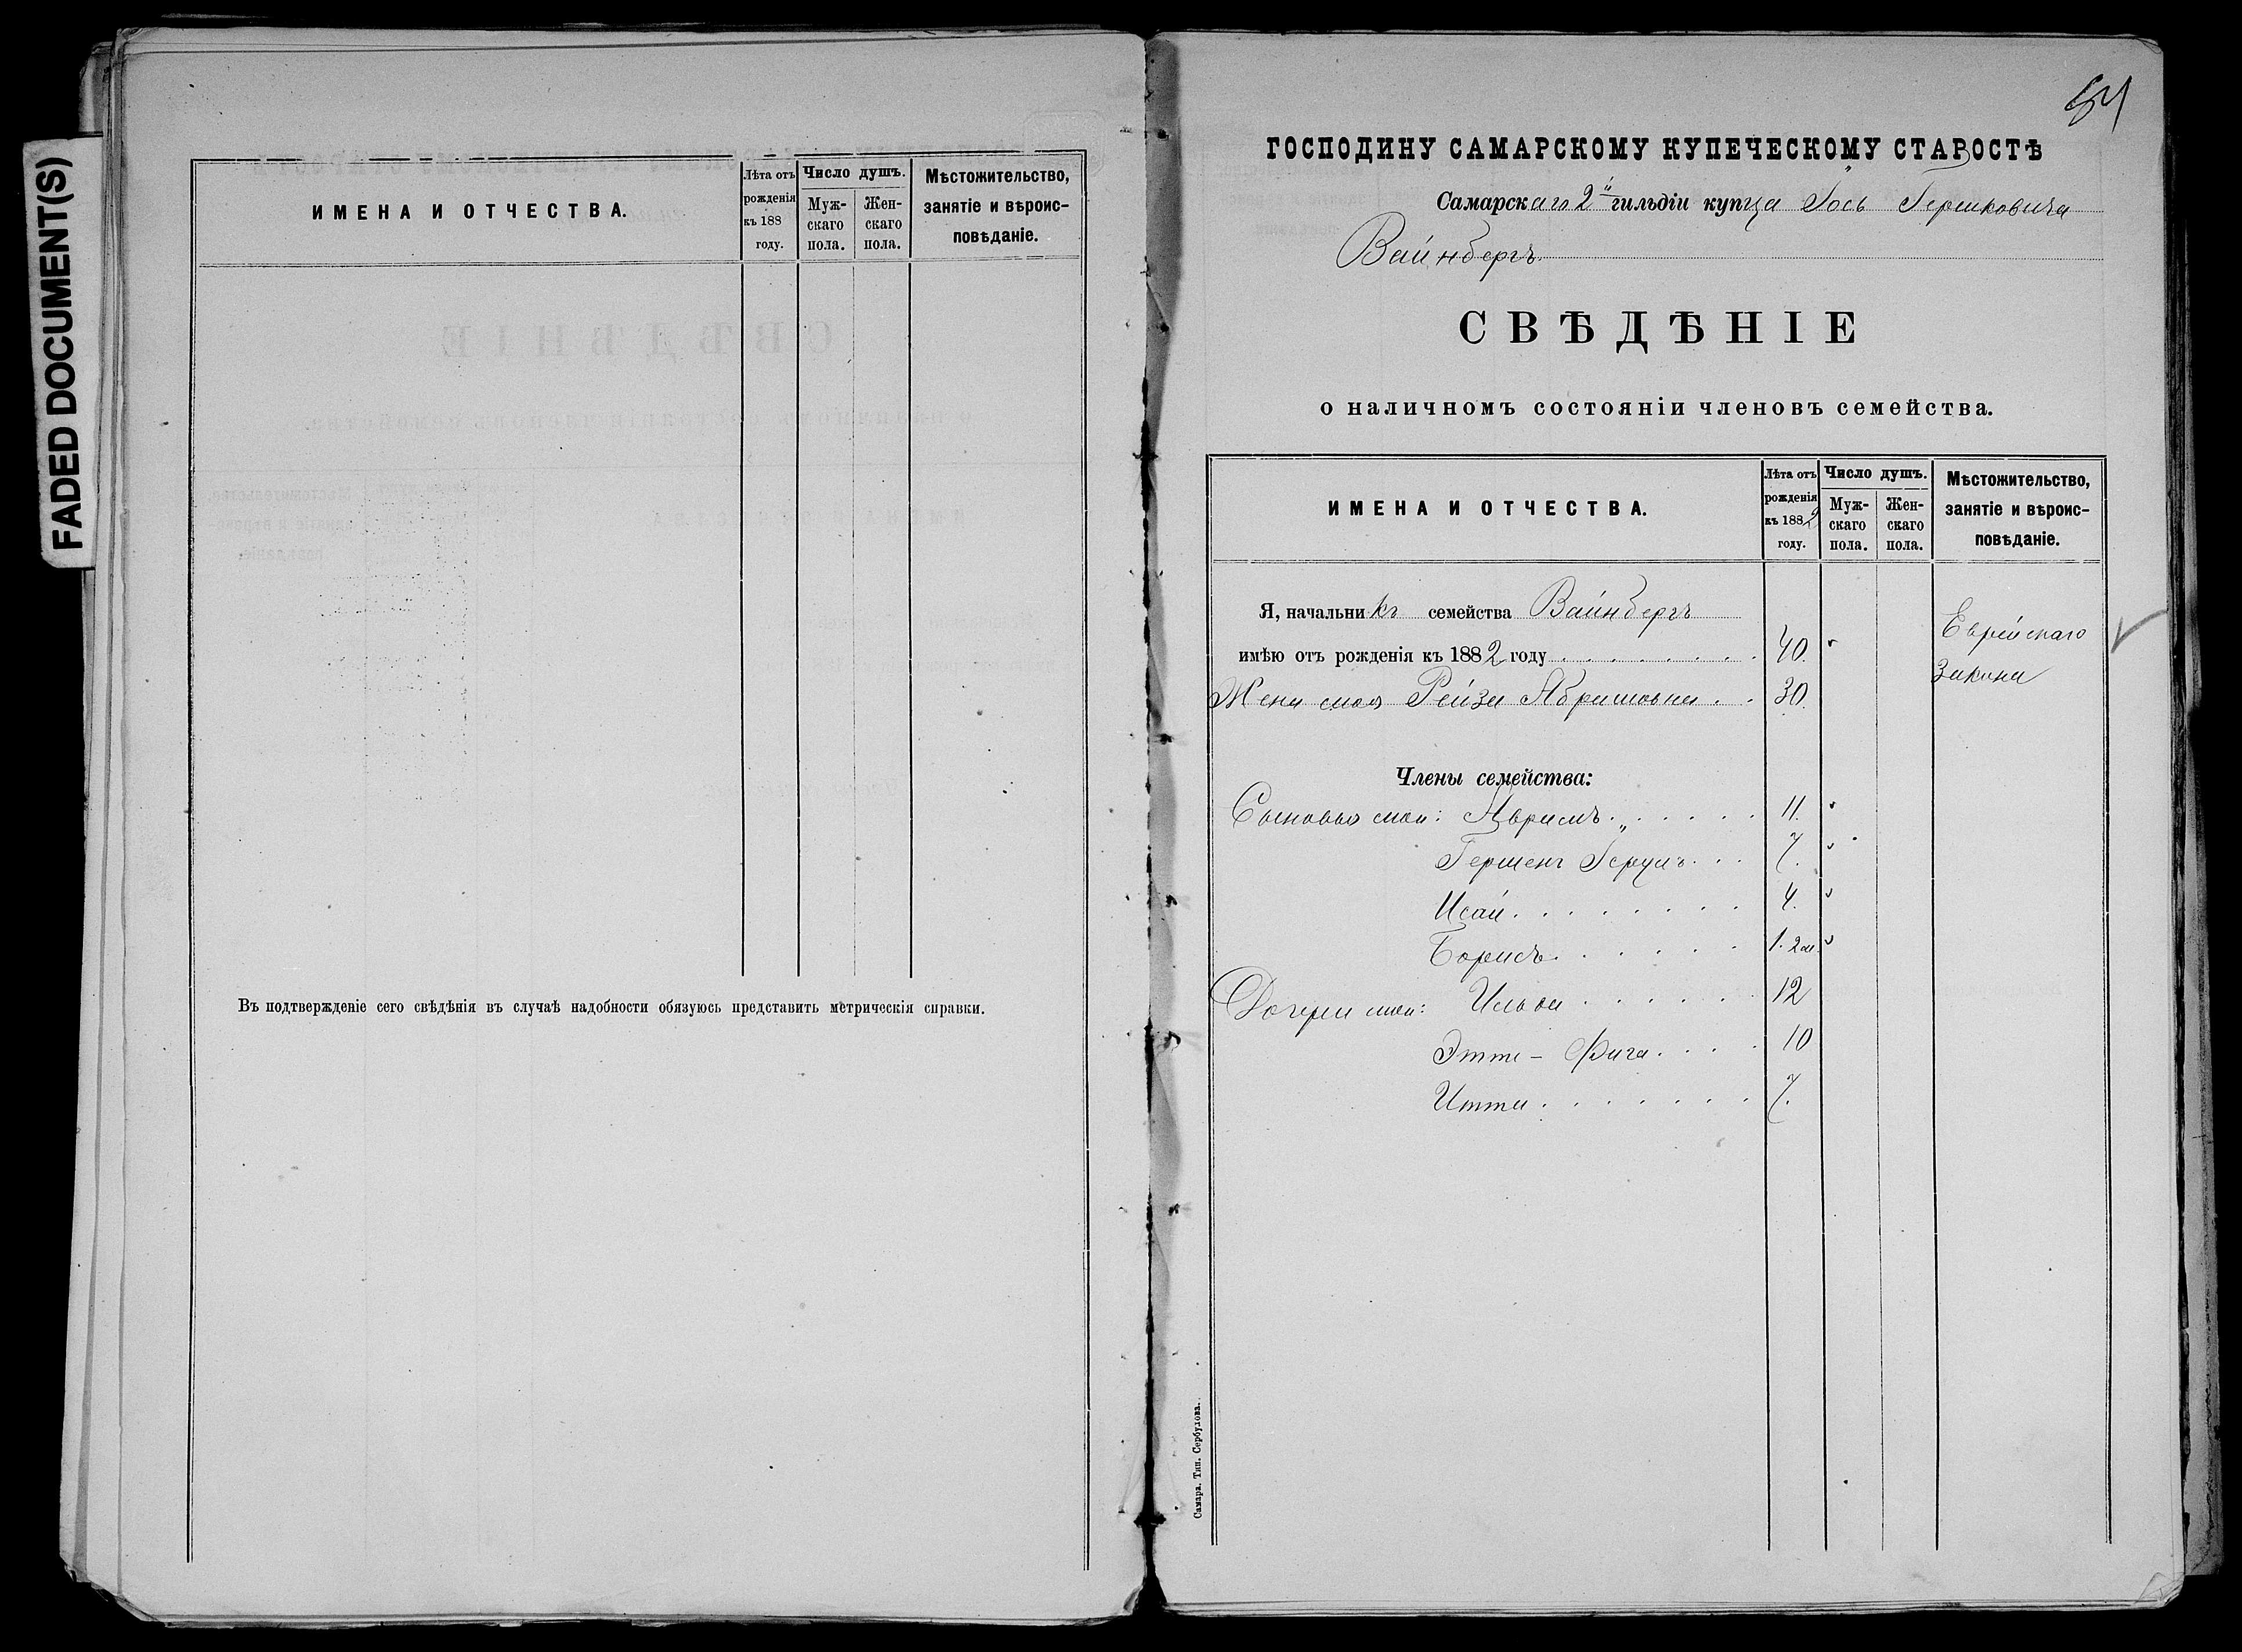 FADED DOCUMENT(S)
ИМЕНА И ОТЧЕСТВА.
Лѣта отъ рожденія къ 188 году.
Число душъ.
Мужскаго пола.
Женскаго пола.
Мѣстожительство, занятіе и вѣроисповѣданіе.
Въ подтвержденіе сего свѣдѣнія въ случаѣ надобности обязуюсь представить метрическія справки.
ГОСПОДИНУ САМАРСКОМУ КУПЕЧЕСКОМУ СТАРОСТѢ
Самарскаго 2й гильдіи купца Іось Гершковича
Вайнбергъ
СВѢДѢНІЕ
о наличномъ состояніи членовъ семейства.
ИМЕНА И ОТЧЕСТВА.
Лѣта отъ рожденія къ 1882 году.
Число душъ.
Мужскаго пола.
Женскаго пола.
Мѣстожительство, занятіе и вѣроисповѣданіе.
Я, начальникъ семейства Вайнбергъ
имѣю отъ рожденія къ 1882 году 40. Еврейскаго
закона
Жена моя Рейза Абрамовна 30.
Члены семейства:
Сыновья мои: Аврамъ 11.
Гершенъ 7.
Исай 4.
Борисъ 1. 2 м.
Дочери мои: 12
Этта - Фига 10
Итта 7.
Самара. Тип. Сербулова.